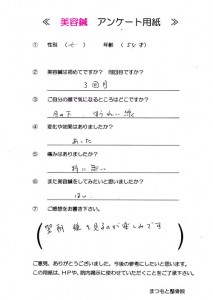 ≪ 美容鍼 アンケート用紙 ≫
① 性別 ( 女 ) 年齢 ( 54才)
② 美容鍼は初めてですか? 何回目ですか?
3回目
③ ご自分の顔で気になるところはどこですか?
目の下、ほうれい線
④ 変化や効果はありましたか?
あった
⑤ 痛みはありましたか?
特に無い
⑥ また美容鍼をしてみたいと思いましたか?
はい
⑦ ご感想をお書き下さい。
翌朝 鏡を見るのが楽しみです
ご意見、ありがとうございました。今後の参考にしたいと思います。
この用紙は、HPや、院内掲示に使わせていただくことをご了承下さい。
まつもと整骨院